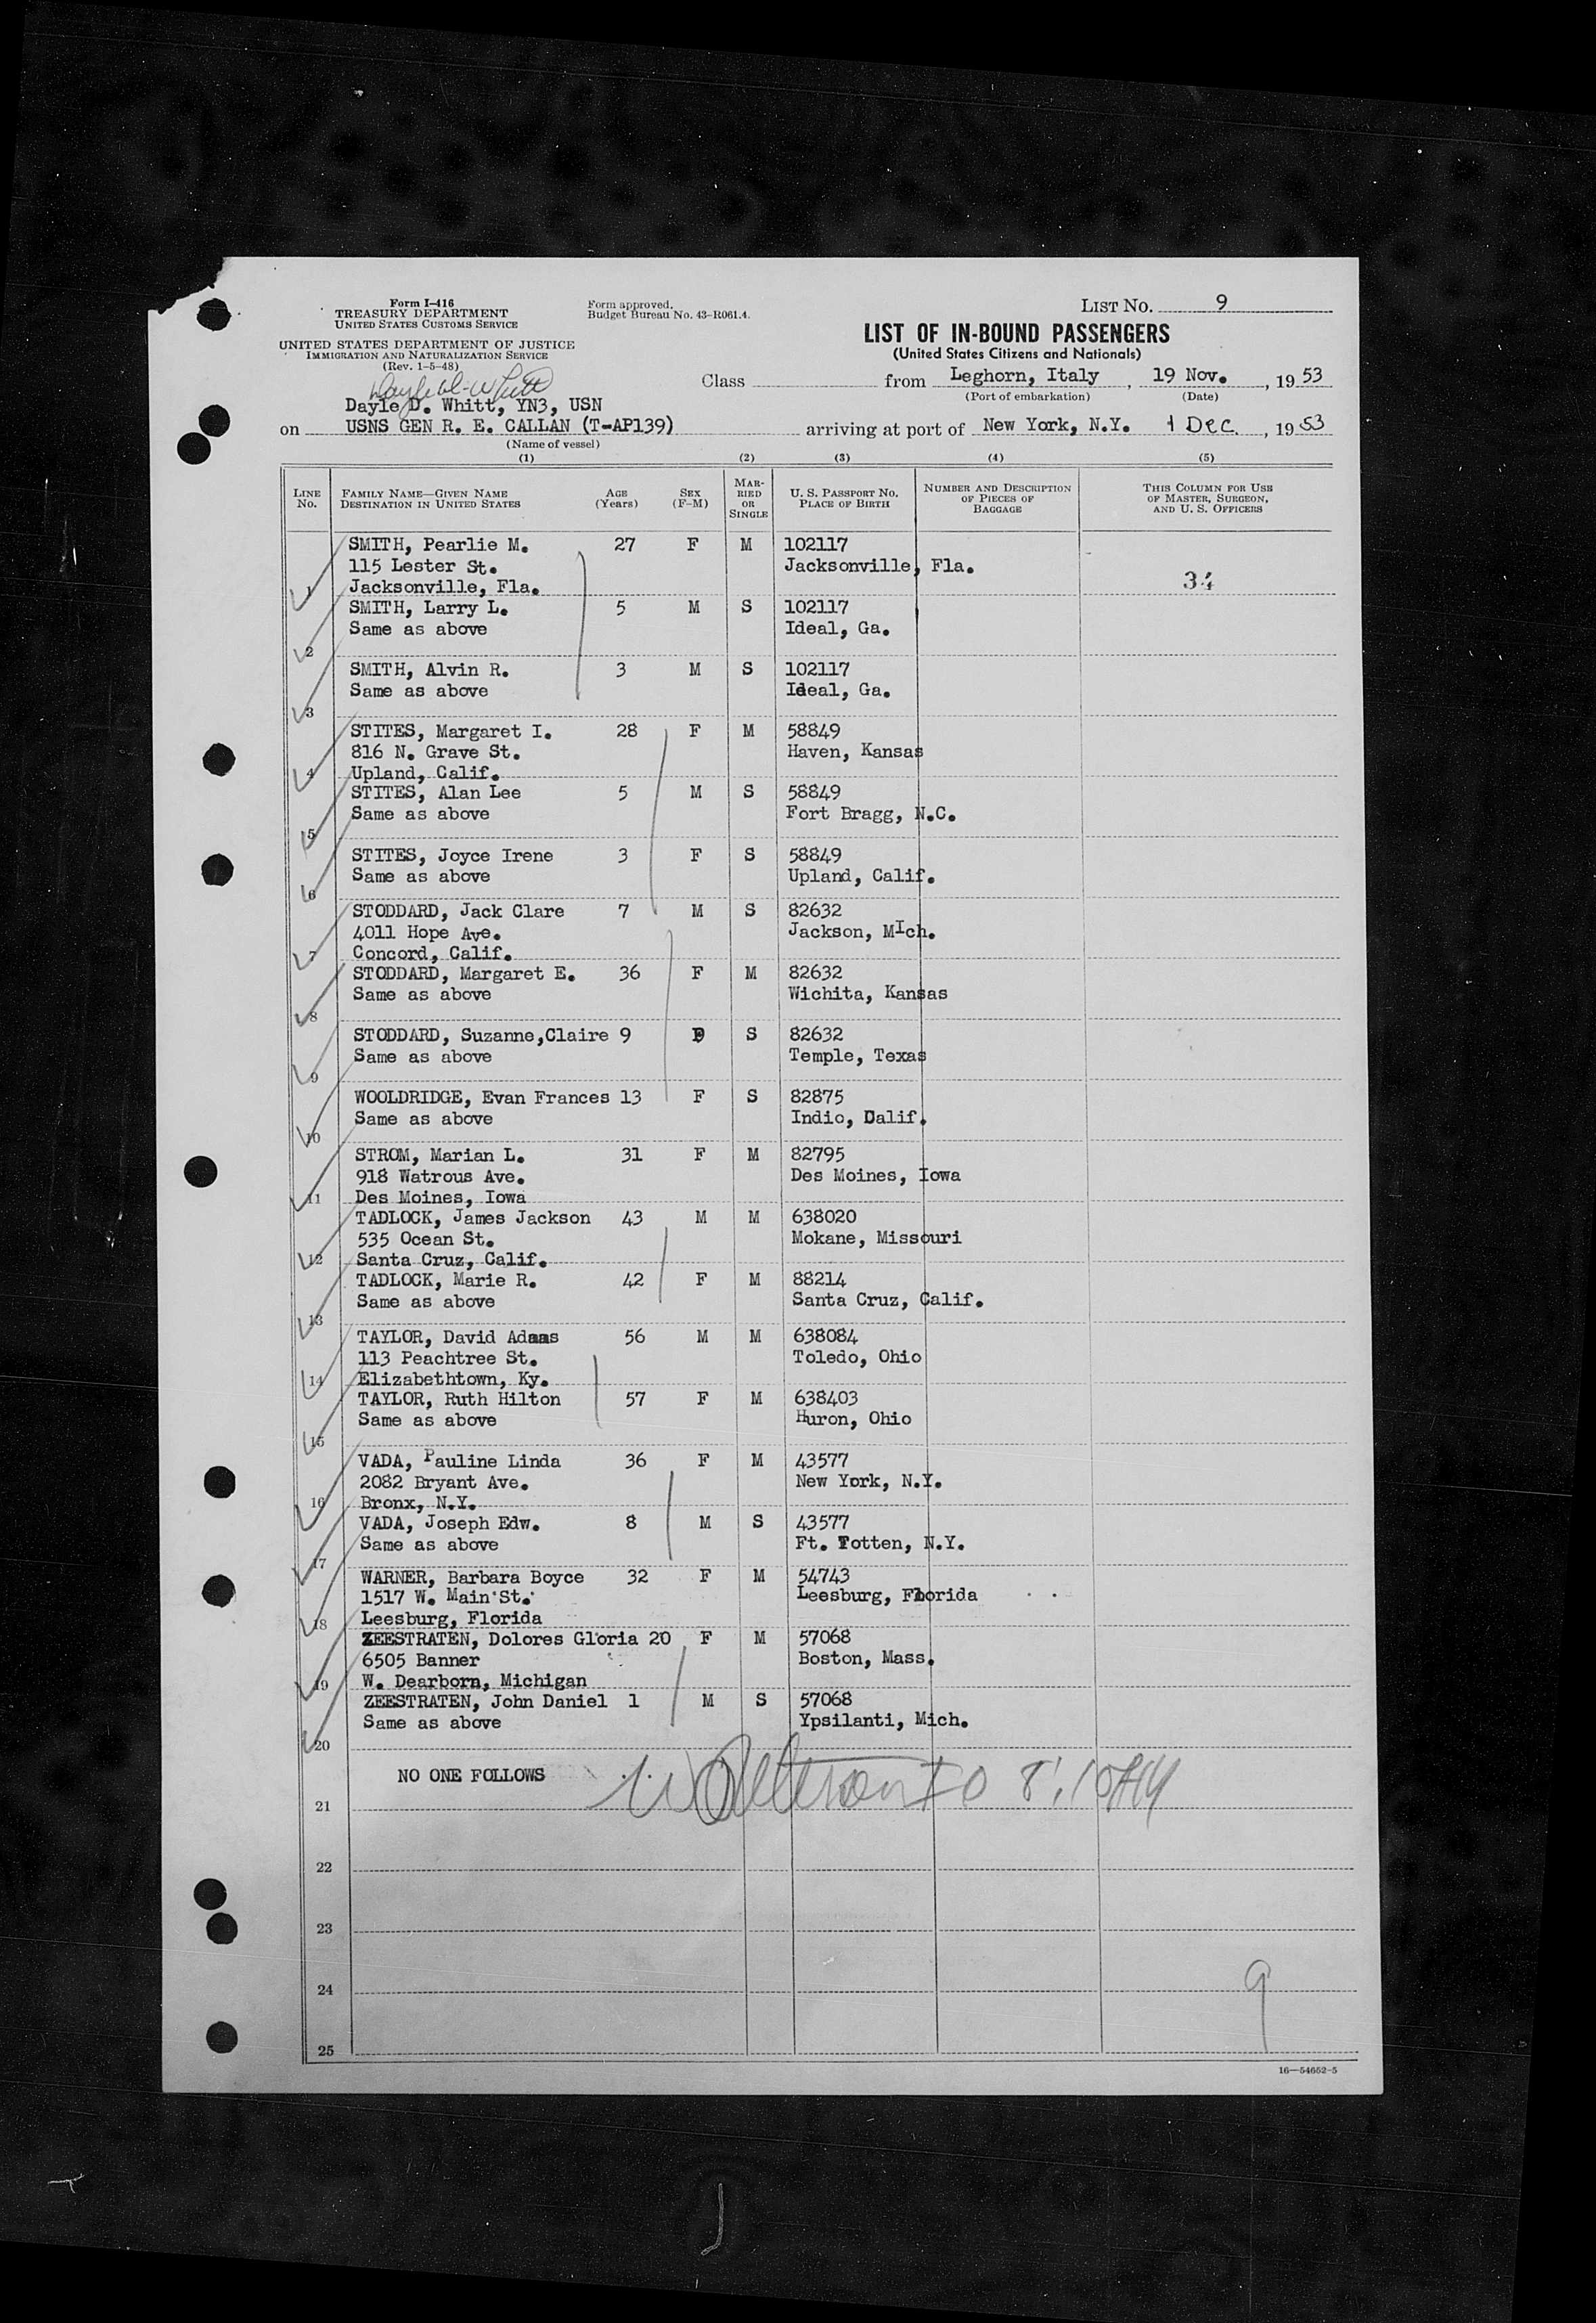 Form I-416
TREASURY DEPARTMENT
UNITED STATES CUSTOMS SERVICE
UNITED STATES DEPARTMENT OF JUSTICE
IMMIGRATION AND NATURALIZATION SERVICE
(Rev. 1-5-48)
Form approved.
Budget Bureau No. 43-R061.4.
LIST NO. 9
LIST OF IN-BOUND PASSENGERS
(United States Citizens and Nationals)
Class from Leghorn, Italy, 19 Nov., 1953
(Port of embarkation) (Date)
Dayle D. Whitt, YN3, USN
on USNS GEN R. E. CALLAN (T-AP139) arriving at port of New York, N.Y. 1 Dec., 1953
(Name of vessel)
(1) (2) (3) (4) (5)
LINE NO. FAMILY NAME—GIVEN NAME DESTINATION IN UNITED STATES AGE (Years) SEX (F-M) MARRIED OR SINGLE U. S. PASSPORT NO. PLACE OF BIRTH NUMBER AND DESCRIPTION OF PIECES OF BAGGAGE THIS COLUMN FOR USE OF MASTER, SURGEON, AND U. S. OFFICERS
SMITH, Pearlie M. 27 F M 102117
115 Lester St. Jacksonville, Fla.
34
1 Jacksonville, Fla.
SMITH, Larry L. 5 M S 102117
Same as above Ideal, Ga.
2
SMITH, Alvin R. 3 M S 102117
Same as above Ideal, Ga.
3
STITES, Margaret I. 28 F M 58849
816 N. Grave St. Haven, Kansas
4 Upland, Calif.
STITES, Alan Lee 5 M S 58849
Same as above Fort Bragg, N.C.
5
STITES, Joyce Irene 3 F S 58849
Same as above Upland, Calif.
6
STODDARD, Jack Clare 7 M S 82632
4011 Hope Ave. Jackson, MIch.
7 Concord, Calif.
STODDARD, Margaret E. 36 F M 82632
Same as above Wichita, Kansas
8
STODDARD, Suzanne,Claire 9 S 82632
Same as above Temple, Texas
9
WOOLDRIDGE, Evan Frances 13 F S 82875
Same as above Indio, Calif.
10
STROM, Marian L. 31 F M 82795
918 Watrous Ave. Des Moines, Iowa
11 Des Moines, Iowa
TADLOCK, James Jackson 43 M M 638020
535 Ocean St. Mokane, Missouri
12 Santa Cruz, Calif.
TADLOCK, Marie R. 42 F M 88214
Same as above Santa Cruz, Calif.
13
TAYLOR, David Adams 56 M M 638084
113 Peachtree St. Toledo, Ohio
14 Elizabethtown, Ky.
TAYLOR, Ruth Hilton 57 F M 638403
Same as above Huron, Ohio
15
VADA, Pauline Linda 36 F M 43577
2082 Bryant Ave. New York, N.Y.
16 Bronx, N.Y.
VADA, Joseph Edw. 8 M S 43577
Same as above Ft. Totten, N.Y.
17
WARNER, Barbara Boyce 32 F M 54743
1517 W. Main St. Leesburg, Florida
18 Leesburg, Florida
ZEESTRATEN, Dolores Gloria 20 F M 57068
6505 Banner Boston, Mass.
19 W. Dearborn, Michigan
ZEESTRATEN, John Daniel 1 M S 57068
Same as above Ypsilanti, Mich.
20
NO ONE FOLLOWS
21
22
23
24
9
25
16—54652-5